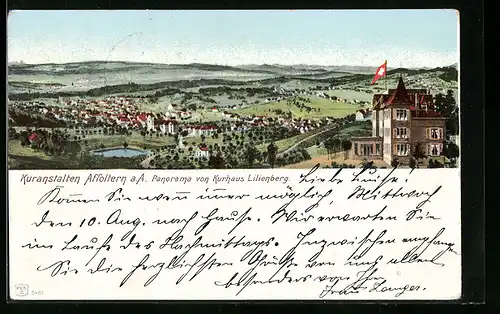 Kuranstalten Affoltern a/A. Panorama von Kurhaus Lilienberg.
Liebe Luise!
Kommen Sie wenn immer möglich, Mittwoch
den 10. Aug. nach Hause. Wir erwarten Sie
im Laufe des Nachmittags. Inzwischen empfangen
Sie die herzlichsten Grüße von uns allen
besonders von Ihrer
Frau
3481